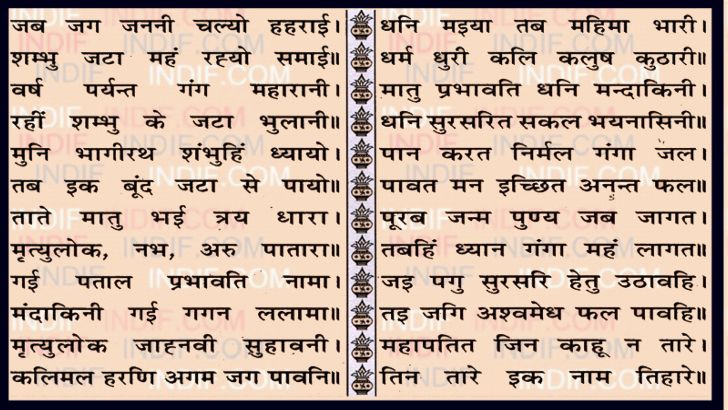 जब जग जननी चल्यो हहराई।
शम्भु जटा महं रह्यो समाई॥
वर्ष पर्यन्त गंग महारानी।
रहीं शम्भु के जटा भुलानी॥
मुनि भागीरथ शंभुहिं ध्यायो।
तब इक बूंद जटा से पायो॥
ताते मातु भई त्रय धारा।
मृत्युलोक, नभ, अरु पातारा॥
गई पताल प्रभावति नामा।
मंदाकिनी गई गगन ललामा॥
मृत्युलोक जाह्नवी सुहावनी।
कलिमल हरणि अगम जग पावनि॥
धनि मइया तब महिमा भारी।
धर्म धुरी कलि कलुष कुठारी॥
मातु प्रभावति धनि मन्दाकिनी।
धनि सुरसरित सकल भयनासिनी॥
पान करत निर्मल गंगा जल।
पावत मन इच्छित अनन्त फल॥
पूरब जन्म पुण्य जब जागत।
तबहिं ध्यान गंगा महं लागत॥
जइ पगु सुरसरि हेतु उठावहि।
तइ जगि अश्वमेध फल पावहि॥
महापतित जिन काहू न तारे।
तिन तारे इक नाम तिहारे॥
INDIF.COM